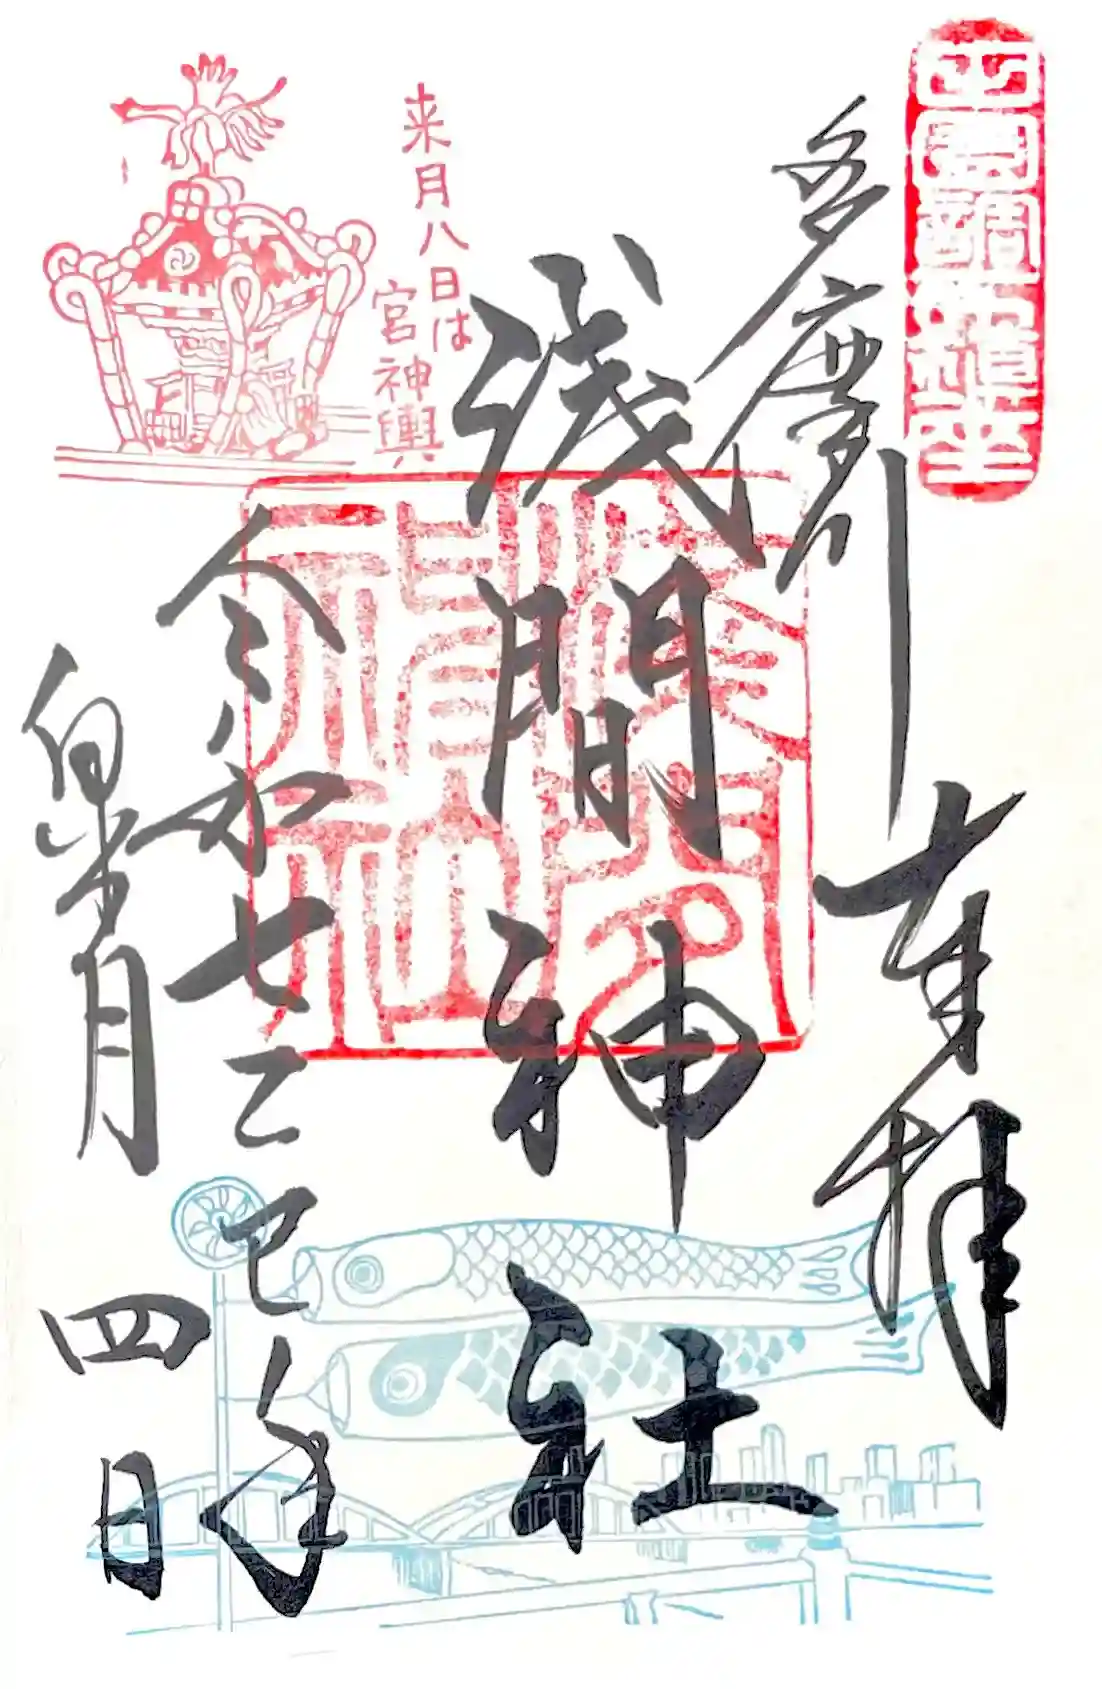 田園調布鎮座
多摩川
奉拝
浅間神社
来月八日は
宮神輿
令和七乙巳年
皐月四日